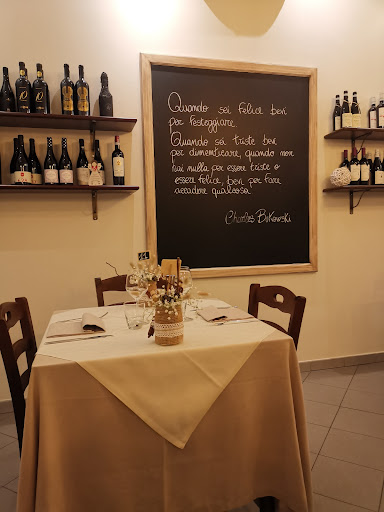 Quando sei felice bevi
per festeggiare.
Quando sei triste bevi
per dimenticare, quando non
hai nulla per essere triste o
essere felice, bevi per fare
accadere qualcosa
Charles BuKowski